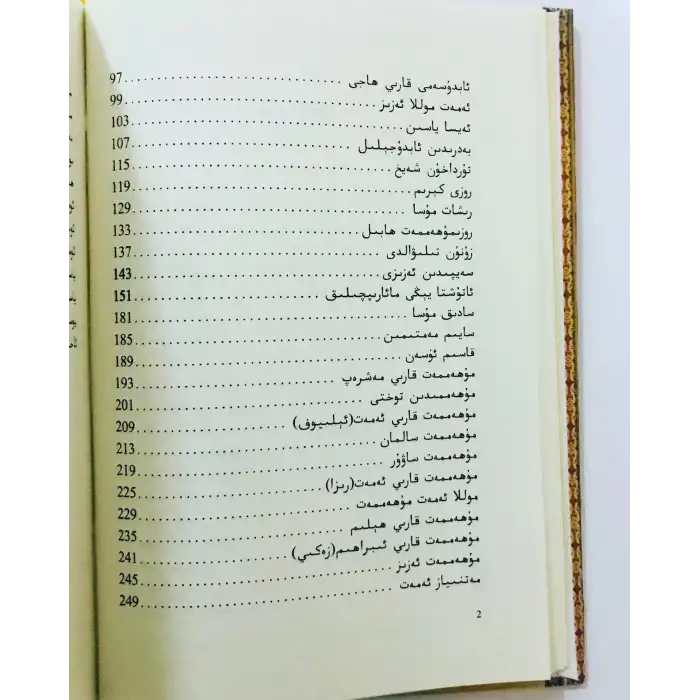 ئابدۇسەمى قارىي ھاجى ........ 97
ئەمەت موللا ئەزىز ........ 99
ئەيسا ياسىن ........ 103
بەدرىدىن ئابدۇجېلىل ........ 107
تۇرداخۇن شەيخ ........ 115
روزى كېرىم ........ 119
رىشات مۇسا ........ 129
روزىمۇھەممەت ھابىل ........ 133
زۇنۇن تىلىۋالدى ........ 137
سەيپىدىن ئەزىزى ........ 143
ئاتۇشتا يېڭى مائارىپچىلىق ........ 151
سادىق مۇسا ........ 181
سايىم مەمتىمىن ........ 185
قاسىم ئۈسەن ........ 189
مۇھەممەت قارىي مەشرەپ ........ 193
مۇھەممىدىن توختى ........ 201
مۇھەممەت قارىي ئەمەت(ئېلىيوف) ........ 209
مۇھەممەت سالمان ........ 213
مۇھەممەت ساۋۇر ........ 219
مۇھەممەت قارىي ئەمەت(رىزا) ........ 225
موللا ئەمەت مۇھەممەت ........ 229
مۇھەممەت قارىي ھېلىم ........ 235
مۇھەممەت قارىي ئىبراھىم(زەكىي) ........ 241
مۇھەممەت ئەزىز ........ 245
مەتنىياز ئەمەت ........ 249
2